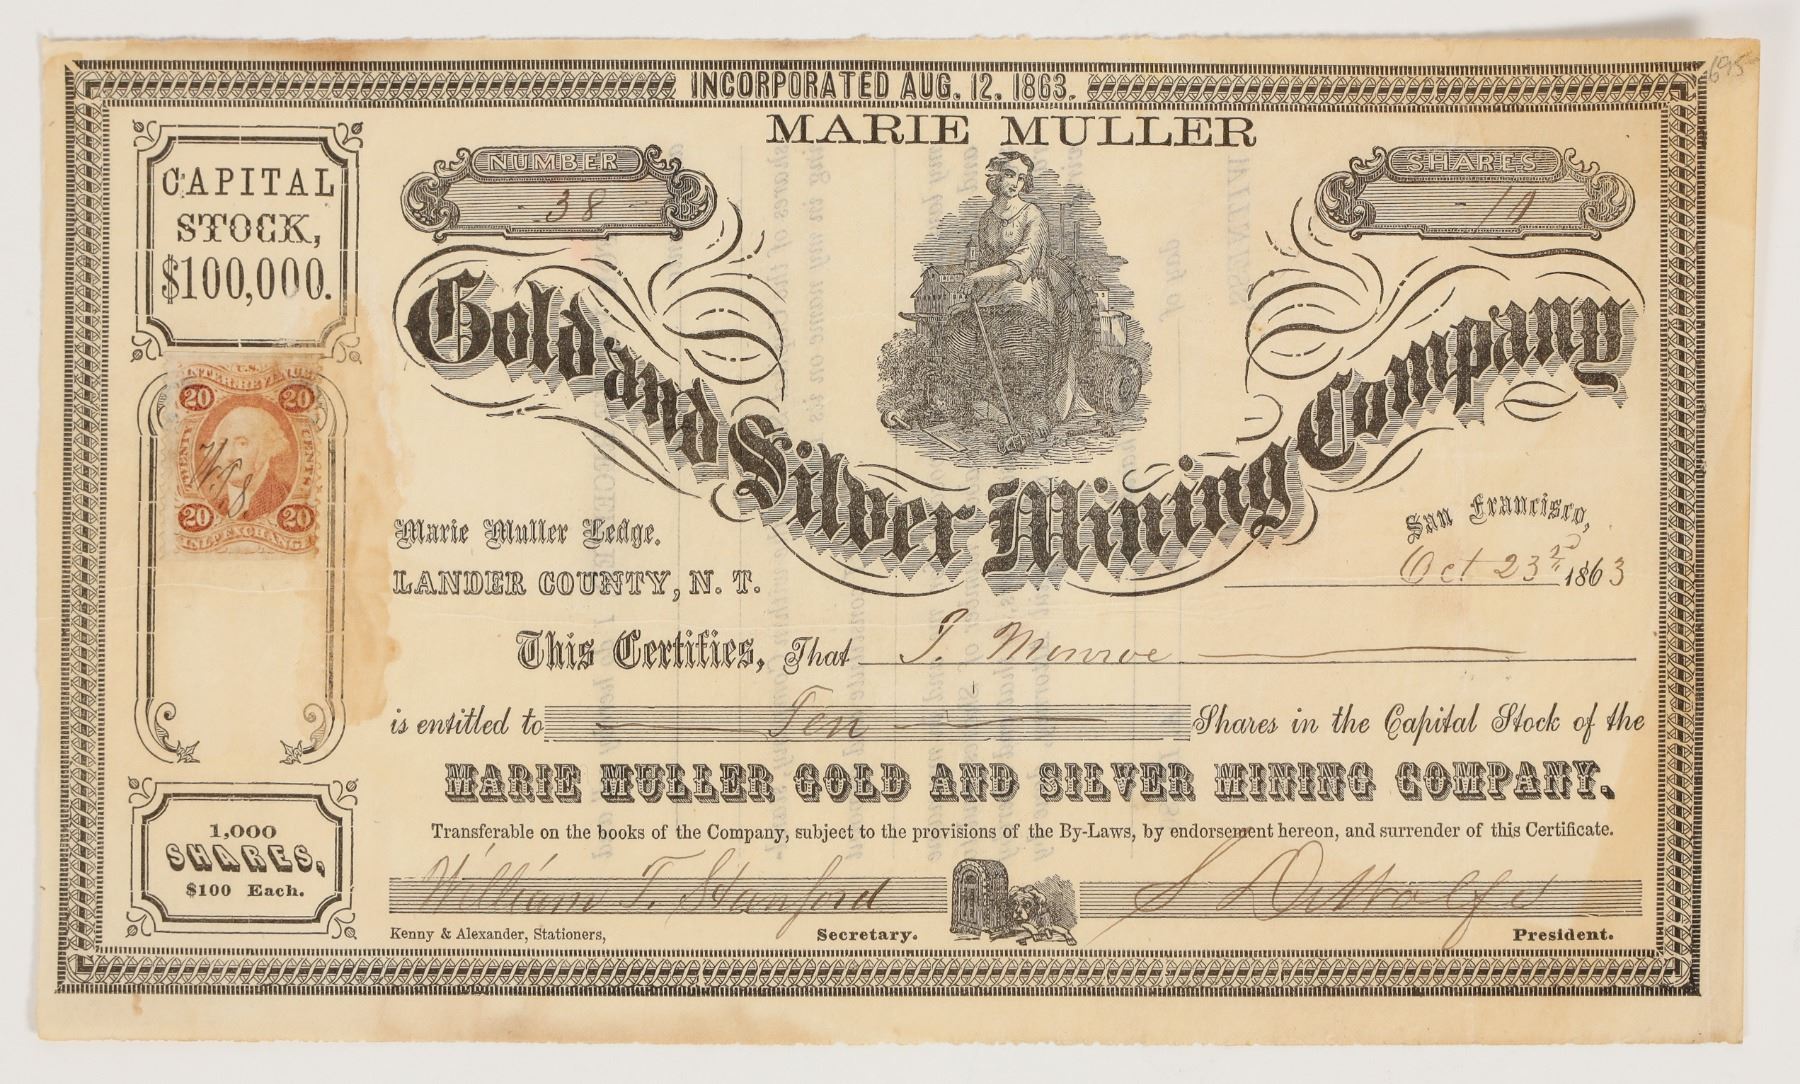 695
INCORPORATED AUG. 12. 1863.
MARIE MULLER
CAPITAL
STOCK,
$100,000.
NUMBER
38
SHARES
10
Gold and Silver Mining Company
U.S.
INTER. REVENUE
20 20
TWENTY CENTS
W.T.S.
20 20
INL. EXCHANGE
Marie Muller Ledge.
LANDER COUNTY, N. T.
San Francisco,
Oct 23rd 1863
This Certifies, That J. Monroe
is entitled to Ten Shares in the Capital Stock of the
MARIE MULLER GOLD AND SILVER MINING COMPANY.
Transferable on the books of the Company, subject to the provisions of the By-Laws, by endorsement hereon, and surrender of this Certificate.
1,000
SHARES,
$100 Each.
William T. Stanford
S DeWolfe
Kenny & Alexander, Stationers,
Secretary.
President.